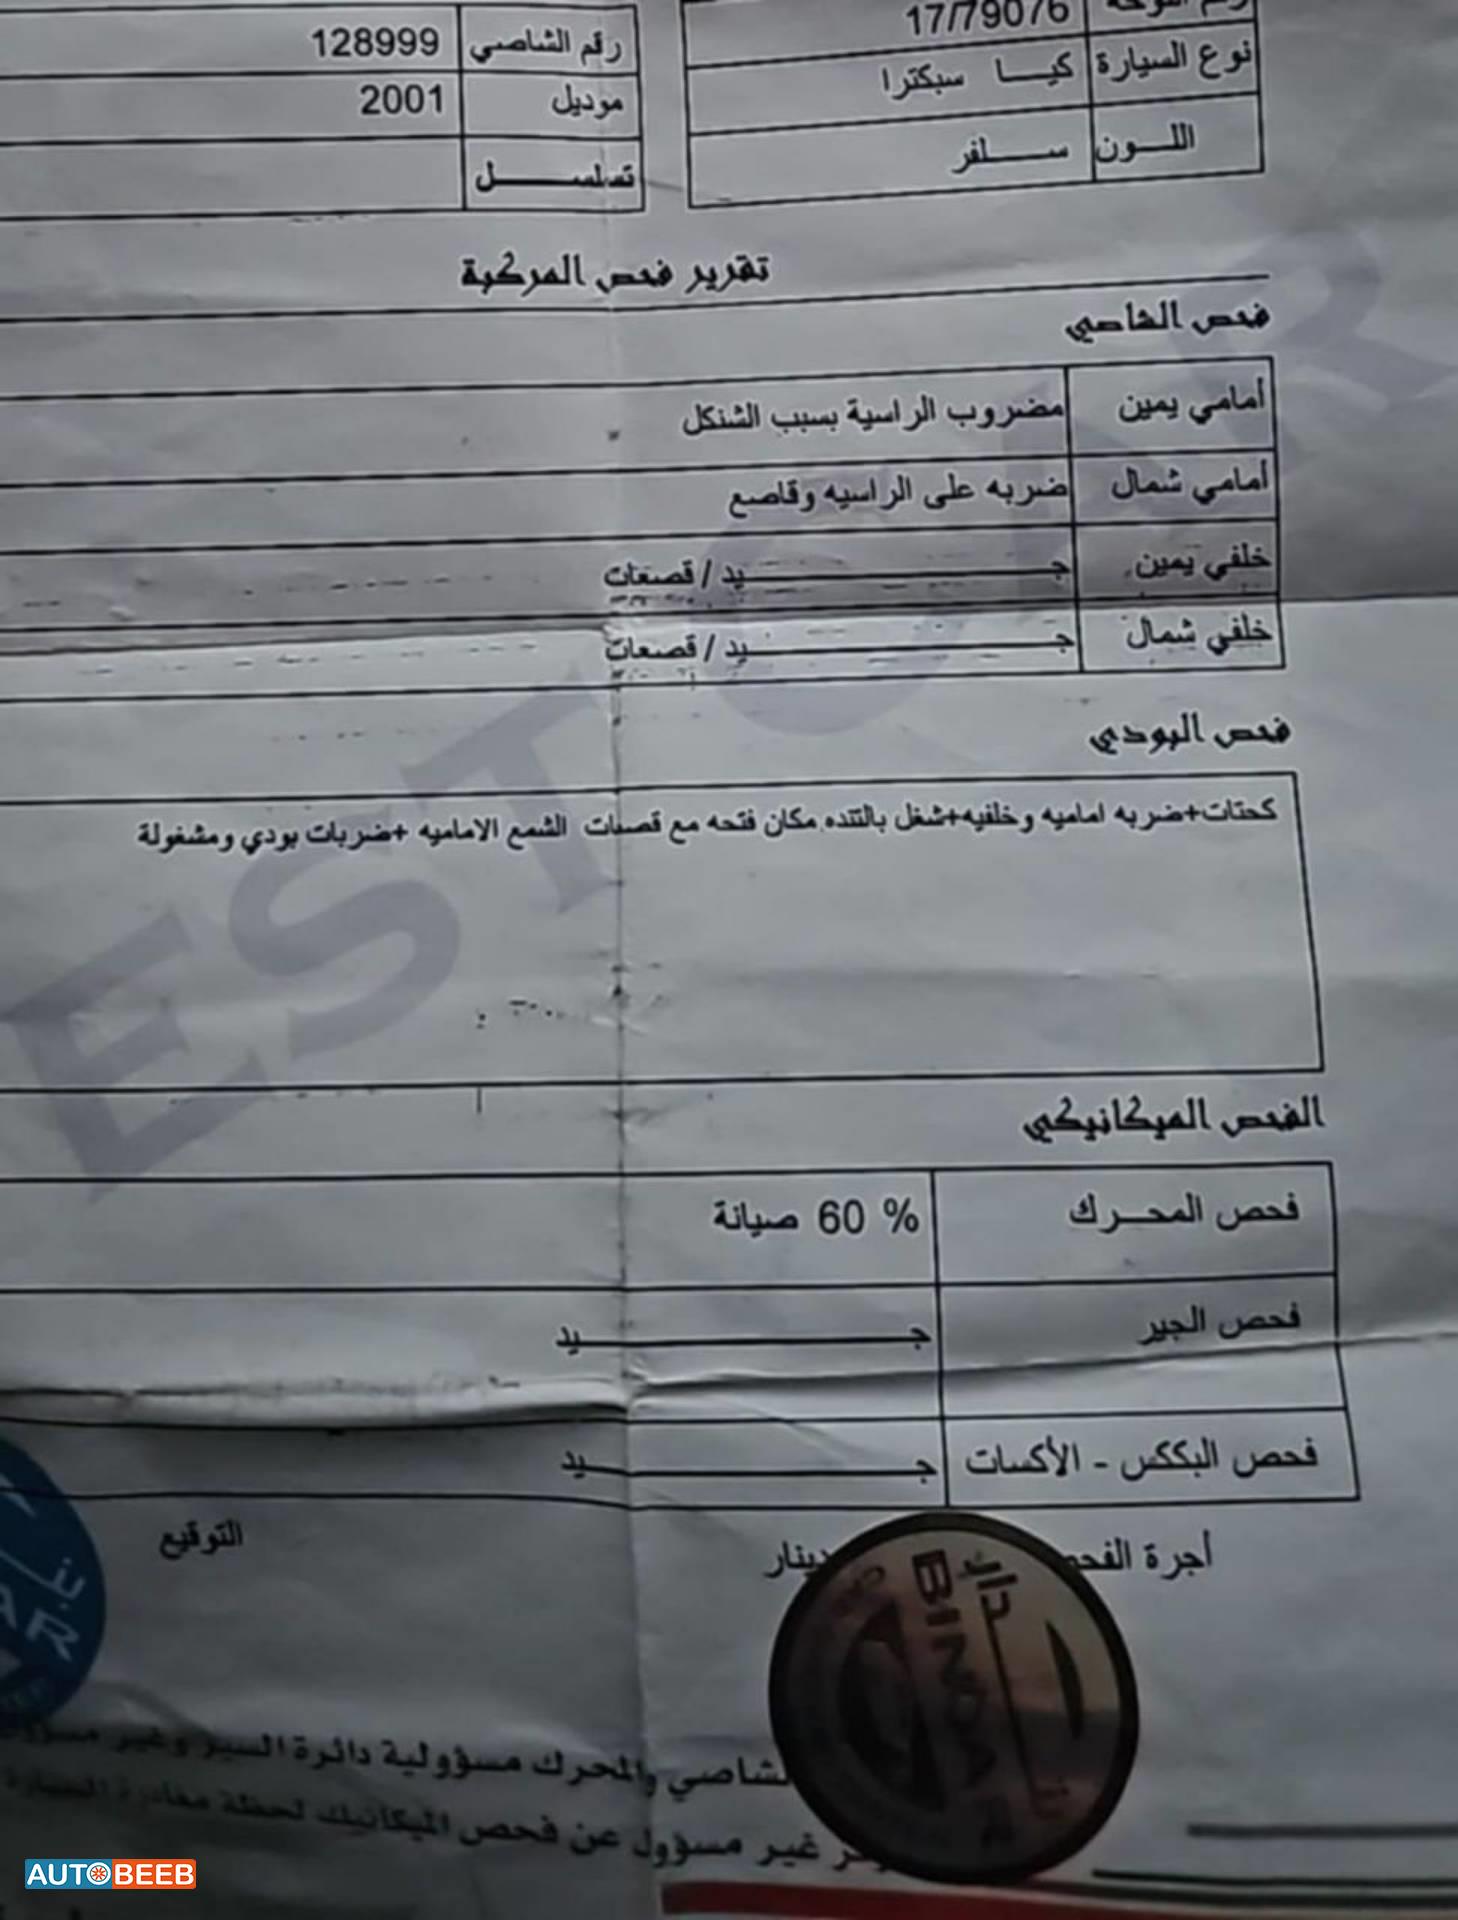 17/79076
رقم الشاصي 128999
نوع السيارة كيا سبكترا
موديل 2001
اللون سلفر
تسلسل
تقرير فحص المركبة
فحص الشاصي
أمامي يمين مضروب الراسية بسبب الشنكل
أمامي شمال ضربه على الراسيه وقاصع
خلفي يمين جيد / قصعات
خلفي شمال جيد / قصعات
فحص البودي
كحتات+ضربه اماميه وخلفيه+شغل بالتنده مكان فتحه مع قصعات الشمع الاماميه +ضربات بودي ومشغولة
الفحص الميكانيكي
فحص المحرك 60 % صيانة
فحص الجير جيد
فحص البككس - الأكسات جيد
أجرة دينار
التوقيع
والمحرك مسؤولية دائرة السير وغير
غير مسؤول عن فحص الميكانيك لحظة مغادرة السيارة
EST CAR
بندار
BINDAR
CAR
AUTOBEEB